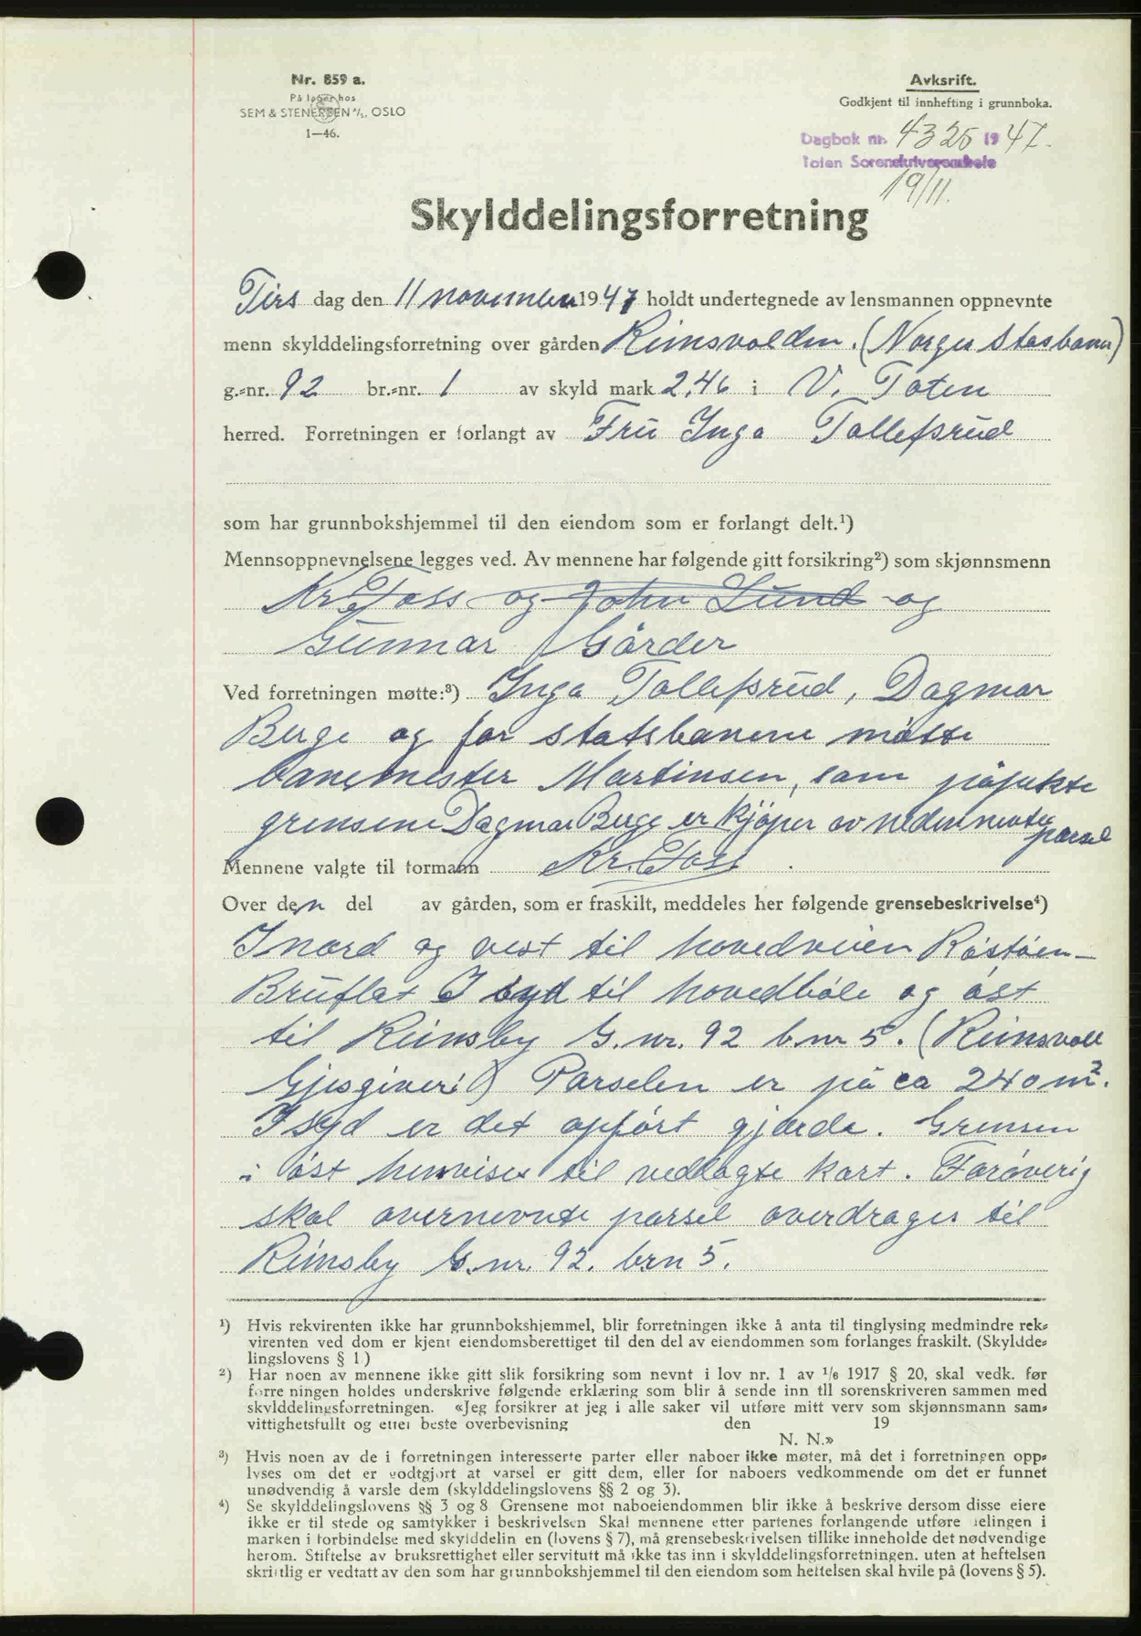 Nr. 859 a.
På lager hos
SEM & STENERSEN A/S. OSLO
1—46.
Avksrift.
Godkjent til innhefting i grunnboka.
Dagbok nr. 4325 1947.
Toten Sorenskriverembete
19/11.
Skylddelingsforretning
Tirs dag den 11 november 1947 holdt undertegnede av lensmannen oppnevnte
menn skylddelingsforretning over gården Reinsvolden. (Norges Stasbaner)
g.-nr. 92 br.-nr. 1 av skyld mark 2,46 i V. Toten
herred. Forretningen er forlangt av Fru Inga Tollefsrud
som har grunnbokshjemmel til den eiendom som er forlangt delt.¹)
Mennsoppnevnelsene legges ved. Av mennene har følgende gitt forsikring²) som skjønnsmenn
Kr. Foss og John Lund og
Gunnar Gårder
Ved forretningen møtte:³) Inga Tollefsrud, Dagmar
Berge og for statsbanene møtte
banemester Martinsen, som påpekte
grensene Dagmar Berge er kjøper av nedennevnte
parsel
Mennene valgte til formann Kr. Foss.
Over den del av gården, som er fraskilt, meddeles her følgende grensebeskrivelse⁴)
I nord og vest til hovedveien Røstøen-
Bruflat I syd til hovedbøle og øst
til Reinsby G. nr. 92 b.nr 5. (Reinsvoll
Gjesgiveri) Parselen er på ca 240 m².
I syd er det oppført gjærde. Grensen
i øst henvises til vedlagte kart. Forøverig
skal overnevnte parsel overdrages til
Reinsby G. nr. 92. brn 5.
¹) Hvis rekvirenten ikke har grunnbokshjemmel, blir forretningen ikke å anta til tinglysing medmindre rek-
virenten ved dom er kjent eiendomsberettiget til den del av eiendommen som forlanges fraskilt. (Skyldde-
lingslovens § 1)
²) Har noen av mennene ikke gitt slik forsikring som nevnt i lov nr. 1 av 1/6 1917 § 20, skal vedk. før
forre ningen holdes underskrive følgende erklæring som blir å sende inn til sorenskriveren sammen med
skylddelingsforretningen. «Jeg forsikrer at jeg i alle saker vil utføre mitt verv som skjønnsmann sam-
vittighetsfullt og etter beste overbevisning den 19
N. N.»
³) Hvis noen av de i forretningen interesserte parter eller naboer ikke møter, må det i forretningen opp-
lyses om det er godtgjort at varsel er gitt dem, eller for naboers vedkommende om det er funnet
unødvendig å varsle dem (skylddelingslovens §§ 2 og 3).
⁴) Se skylddelingslovens §§ 3 og 8 Grensene mot naboeiendommen blir ikke å beskrive dersom disse eiere
ikke er til stede og samtykker i beskrivelsen Skal mennene etter partenes forlangende utføre delingen i
marken i forbindelse med skylddelin en (lovens § 7), må grensebeskrivelsen tillike inneholde det nødvendige
herom. Stiftelse av bruksrettighet eller servitutt må ikke tas inn i skylddelingsforretningen. uten at heftelsen
skriftlig er vedtatt av den som har grunnbokshjemmel til den eiendom som heftelsen skal hvile på (lovens § 5).